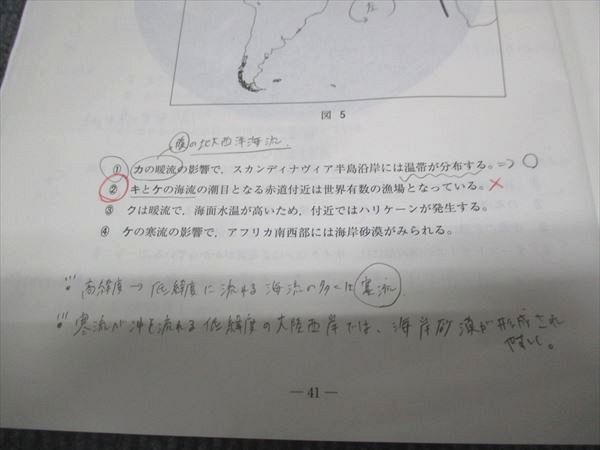 図 5
暖の北大西洋海流.
① カの暖流の影響で，スカンディナヴィア半島沿岸には温帯が分布する。⇒○
② キとケの海流の潮目となる赤道付近は世界有数の漁場となっている。×
③ クは暖流で，海面水温が高いため，付近ではハリケーンが発生する。
④ ケの寒流の影響で，アフリカ南西部には海岸砂漠がみられる。
高緯度 → 低緯度に流れる海流の多くは寒流
寒流が沖を流れる低緯度の大陸西岸では、海岸砂漠が形成され
やすい。
— 41 —